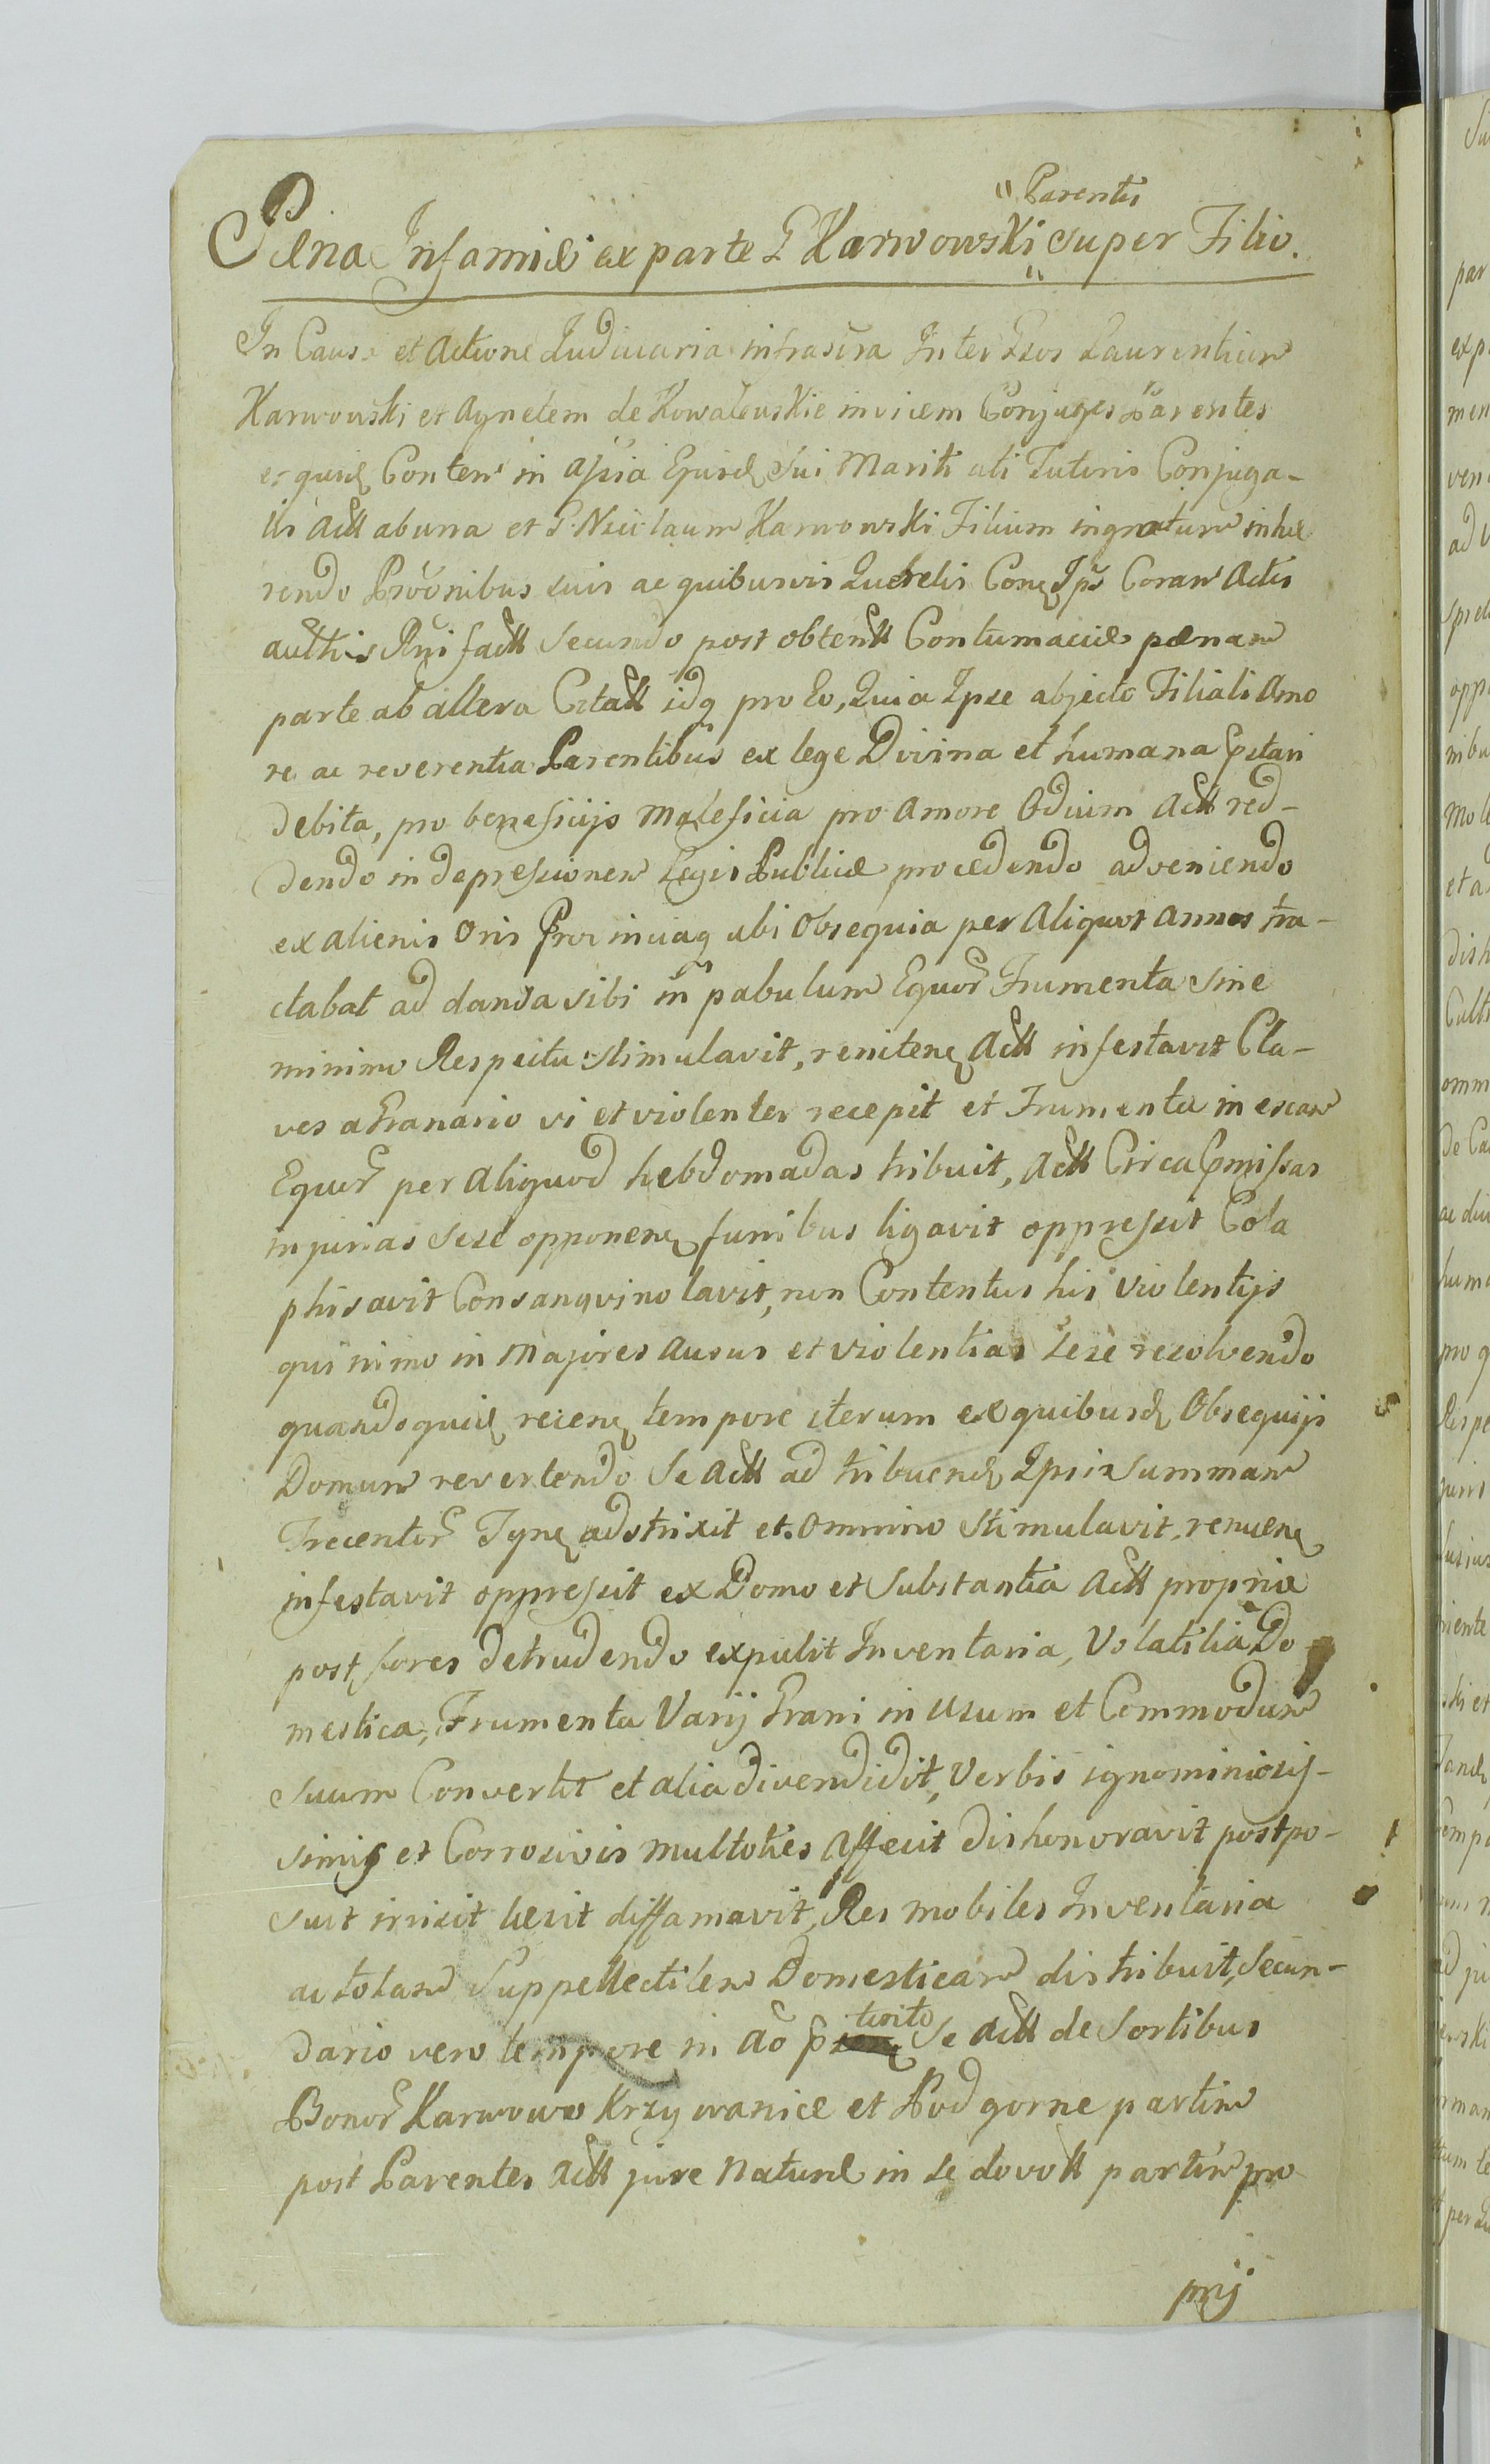 " Parentis
Pæna Infamiæ ex parte G Karwowski " super Filio.
In Causa et Actione Judiciaria infrascra Inter Gsos Laurentium
Karwowski et Agnetem de Kowalewskie invicem Conjuges Parentes
Conten in assia Ejusd sui Mariti uti Tutoris Conjuga-
lis actt ab una et G. Nicolaum Karwowski Filium ingratum inhæ
rendo suis ac quibusvis Querelis Coram Actis
authcis factt secundo post obtentt Contumaciæ pænam
parte ab altera Citatt idq pro Eo, Quia Ipse abjecto Filiali Amo
re ac reverentia Parentibus ex lege Divina et humana
debita, pro beneficijs Maleficia pro Amore Odium Actt red-
dendo in depressionem Legis Publicæ procedendo adveniendo
ex alienis Oris ubi Obsequia per Aliquot Annos tra-
ctabat ad danda sibi in pabulum Equor Frumenta sine
minimo Respectu stimulavit, reniten Actt infestavit Cla-
ves a Granario vi et violenter recepit et Frumenta in escam
Equor per Aliquod hebdomadas tribuit, Actt Circa Cmissas
injurias sese opponen funibus ligavit oppressit Cola
phisavit Consangvinolavit, non Contentus his violentijs
qui nimo in Majores Ausus et violentias sese resolvendo
quandoquid recen tempore iterum ex quibusd Obsequijs
Domum revertendo Se Actt ad tribuend Ipsi Summam
Trecentor Tyn adstrixit et omnino Stimulavit, renuen
infestavit oppressit ex Domo et Substantia Actt propria
post fores detrudendo expulit Inventaria, Volatilia Do-
mestica, Frumenta Varij Grani in Usum et Commodum
suum Convertit et alia divendidit, Verbis ignominiosis-
simis et Corrosivis multoties Affecit dishonoravit postpo-
suit irrisit læsit diffamavit, Res mobiles Inventaria
ac totam Suppellectilem Domesticam distribuit, Secun-
dario vero tempore in Ao Se Actt de Sortibus
Bonor Karwowo Krzywanice et Podgorne partim
post Parentes Actt jure Naturæ in se devott partim pro
prij